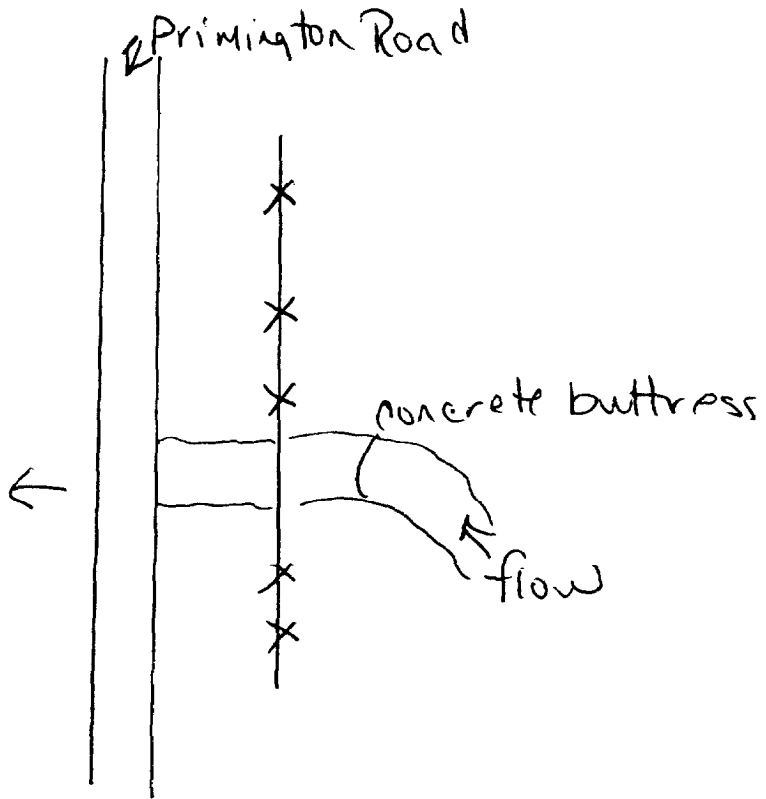 Primington Road
concrete buttress
flow